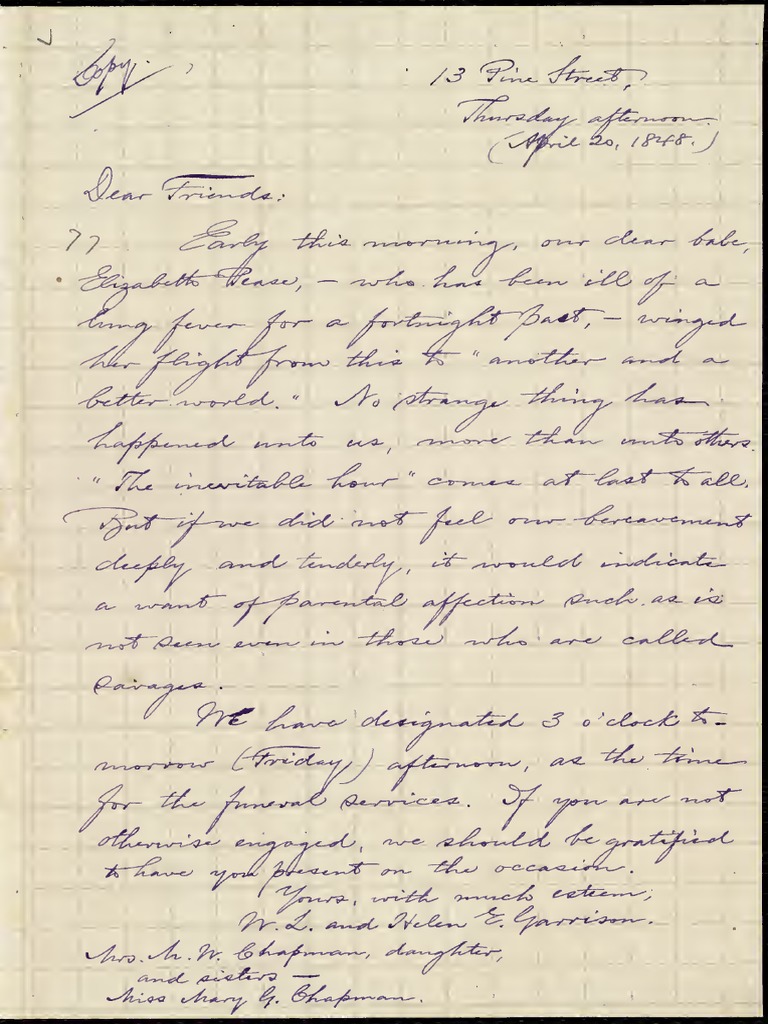 Copy.
13 Pine Street,
Thursday afternoon.
(April 20, 1848.)
Dear Friends:
77 Early this morning, our dear babe,
Elizabeth Pease, – who has been ill of a
lung fever for a fortnight past, – winged
her flight from this to "another and a
better world." No strange thing has
happened unto us, more than unto others.
"The inevitable hour" comes at last to all.
But if we did not feel our bereavement
deeply and tenderly, it would indicate
a want of parental affection such as is
not seen even in those who are called
savages.
We have designated 3 o'clock to-
morrow (Friday) afternoon, as the time
for the funeral services. If you are not
otherwise engaged, we should be gratified
to have you present on the occasion.
Yours, with much esteem,
W. L. and Helen E. Garrison.
Mrs. M. W. Chapman, daughter,
and sisters —
Miss Mary G. Chapman.